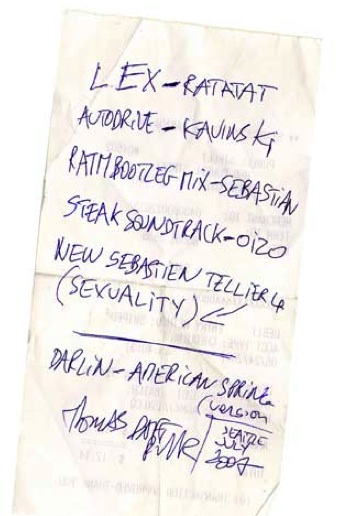 LEX - RATATAT
AUTODRIVE - KAVINSKY
RATM BOOTLEG MIX - SEBASTIAN
STEAK SOUNDTRACK - OIZO
NEW SEBASTIEN TELLIER
(SEXUALITY)
DARLIN - AMERICAN SPRING
(version
THOMAS DAFT
PUNK
SEATTLE
JULY
2007